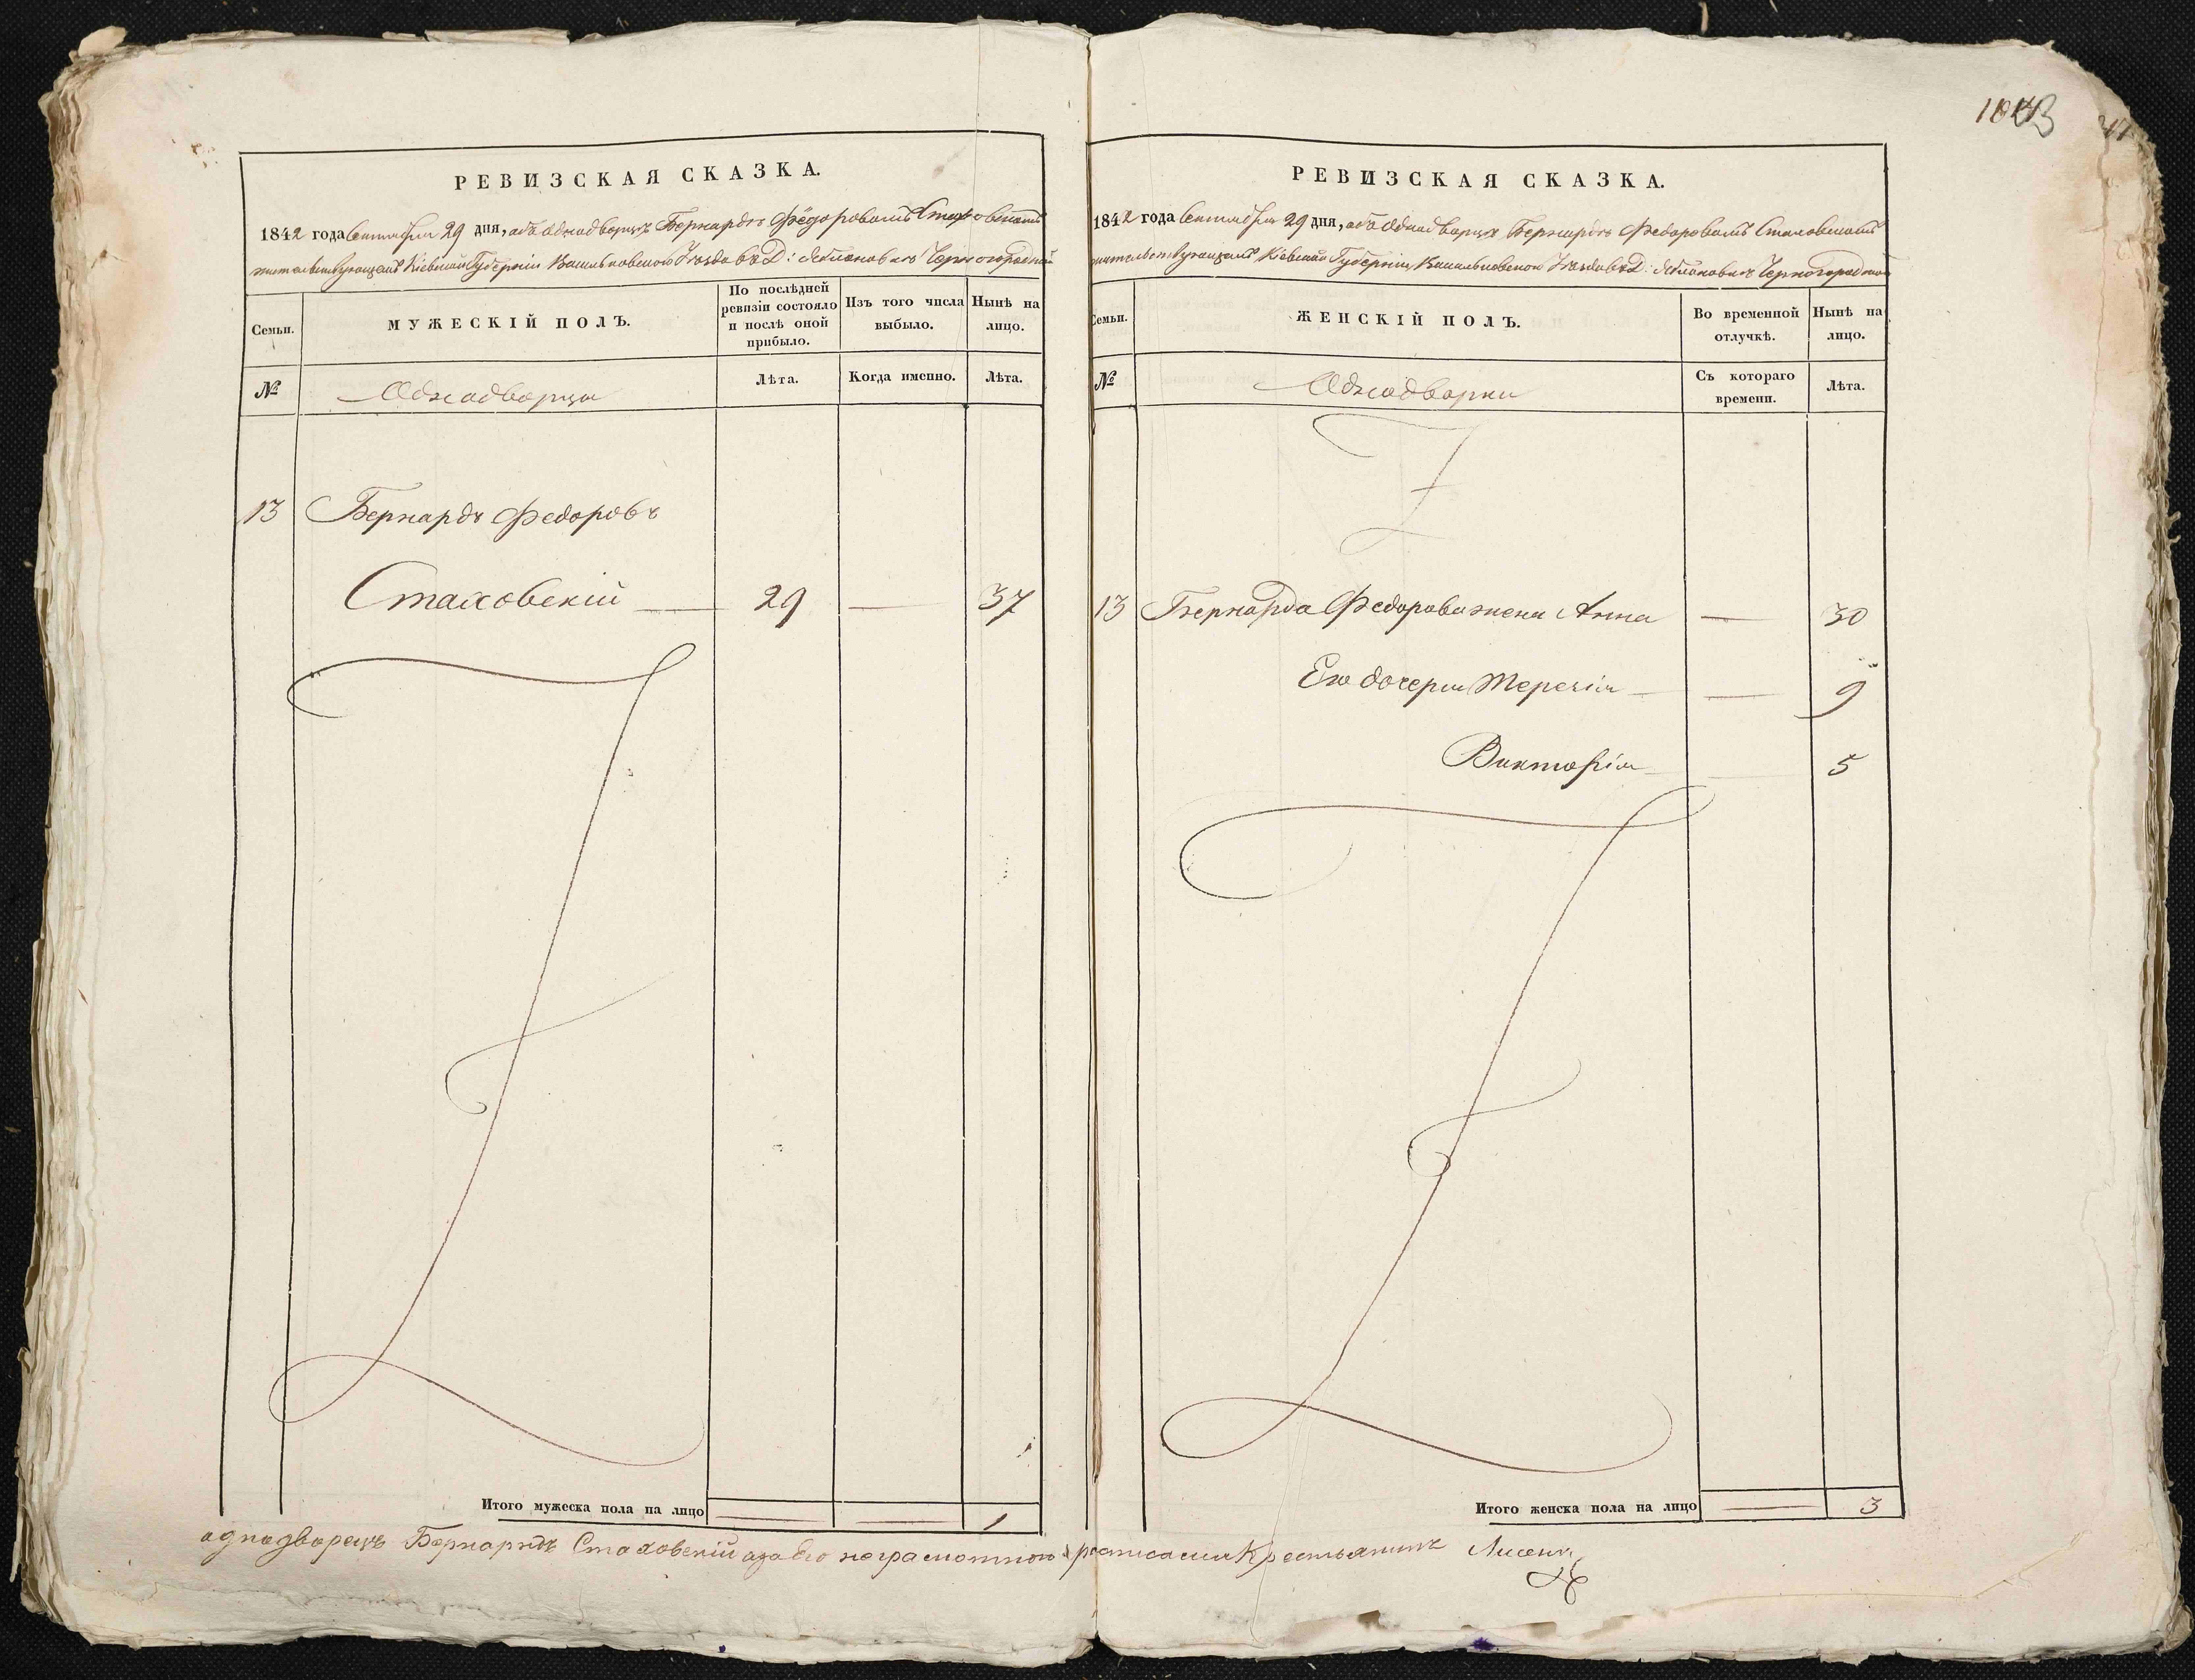 РЕВИЗСКАЯ СКАЗКА.
1842 года Сентября 29 дня, объ Однодворце Бернарде Федоровомъ Стаховскомъ
жительствующемъ Кіевской Губерніи Васильковскаго Уезда въ Д: Яблоновке
Семьи.
МУЖЕСКІЙ ПОЛЪ.
По послѣдней ревизіи состояло и послѣ оной прибыло.
Изъ того числа выбыло.
Нынѣ на лицо.
№
Однодворцы
Лѣта.
Когда именно.
Лѣта.
13 Бернардъ Федоровъ
Стаховскій — 29 — 37
Итого мужеска пола на лицо — — 1
РЕВИЗСКАЯ СКАЗКА.
1842 года Сентября 29 дня, объ Однодворце Бернарде Федоровомъ Стаховскомъ
жительствующемъ Кіевской Губерніи Васильковскаго Уезда въ Д: Яблоновке
Семьи.
ЖЕНСКІЙ ПОЛЪ.
Во временной отлучкѣ.
Нынѣ на лицо.
№
Однодворки
Съ котораго времени.
Лѣта.
13 Бернарда Федорова жена Анна — 30
Его дочери Терезія — — 9
Викторія — — 5
Итого женска пола на лицо — 3
однодворецъ Бернардъ Стаховскій а за его неграмотного росписался Крестьянинъ